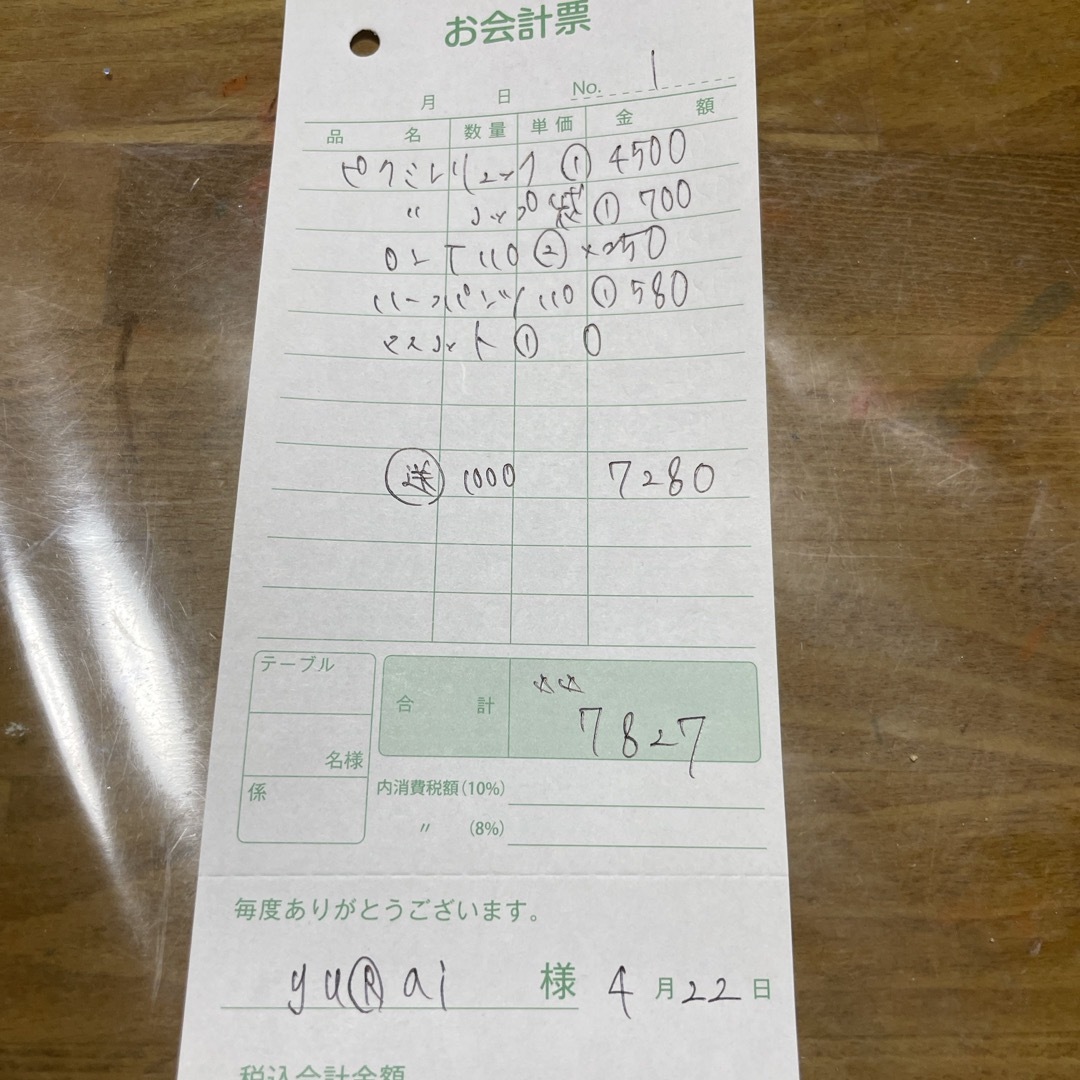 お会計票
No. 1
月 日
品名 数量 単価 金額
ピクミンリュック ① 4500
〃 コップ袋 ① 700
ロンT 110 ② × 250
110 ① 580
マスコット ① 0
送 1000 7280
テーブル
合計 ☆☆ 7827
名様
係
内消費税額(10%)
〃 (8%)
毎度ありがとうございます。
yuRai 様 4月22日
税込合計金額